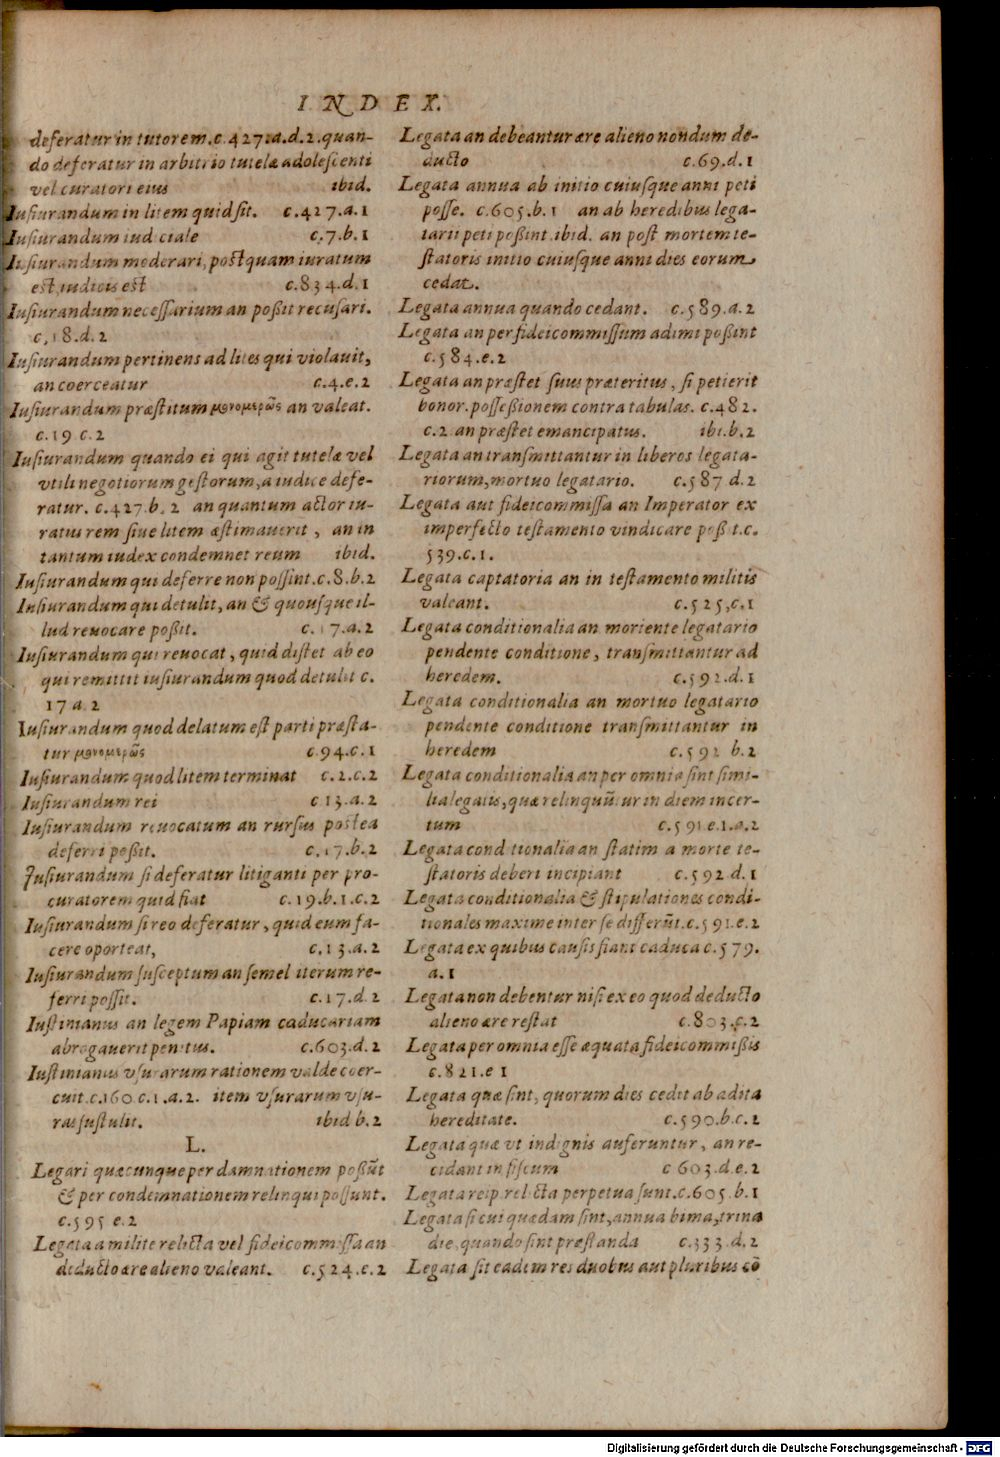 INDEX.
deferatur in tutorem. c.427.a.d.2. quan-
do deferatur in arbitrio tutelæ adolescenti
vel curatori eius ibid.
Iusiurandum in litem quid sit. c.427.a.1
Iusiurandum iudiciale c.7.b.1
Iusiurandum moderari, postquam iuratum
est, iudicis est c.834.d.1
Iusiurandum necessarium an poßit recusari.
c,18.d.2
Iusiurandum pertinens ad lites qui violauit,
an coerceatur c.4.e.2
Iusiurandum præstitum μονομερῶς an valeat.
c.19 c.2
Iusiurandum quando ei qui agit tutelæ vel
vtili negotiorum gestorum, a iudice defe-
ratur. c.427.b.2 an quantum actor iu-
ratus rem siue litem æstimauerit, an in
tantum iudex condemnet reum ibid.
Iusiurandum qui deferre non possint. c.8.b.2
Iusiurandum qui detulit, an & quousque il-
lud reuocare poßit. c.17.a.2
Iusiurandum qui reuocat, quid distet ab eo
qui remittit iusiurandum quod detulit c.
17 a.2
Iusiurandum quod delatum est parti præsta-
tur μονομερῶς c.94.c.1
Iusiurandum quod litem terminat c.2.c.2
Iusiurandum rei c 13.a.2
Iusiurandum reuocatum an rursus postea
deferri poßit. c.17.b.2
Iusiurandum si deferatur litiganti per pro-
curatorem quid fiat c.19.b.1.c.2
Iusiurandum si reo deferatur, quid eum fa-
cere oporteat, c.13.a.2
Iusiurandum susceptum an semel iterum re-
ferri possit. c.17.d.2
Iustinianus an legem Papiam caducariam
abrogauerit penitus. c.603.d.2
Iustinianus vsurarum rationem valde coer-
cuit. c.160.c.1.a.2. item vsurarum vsu-
ras sustulit. ibid b.2
L.
Legari quæcunque per damnationem poßūt
& per condemnationem relinqui possunt.
c.595 e.2
Legata a milite relicta vel fideicommissa an
deducto ære alieno valeant. c.524.c.2
Legata an debeantur ære alieno nondum de-
ducto c.69.d.1
Legata annua ab initio cuiusque anni peti
posse. c.605.b.1 an ab heredibus lega-
tarii peti poßint. ibid. an post mortem te-
statoris initio cuiusque anni dies eorum
cedat.
Legata annua quando cedant. c.589.a.2
Legata an per fideicommissum adimi poßint
c.584.e.2
Legata an præstet suus præteritus, si petierit
bonor. possessionem contra tabulas. c.482.
c.2 an præstet emancipatus. ibi.b.2
Legata an transmittantur in liberos legata-
riorum, mortuo legatario. c.587 d.2
Legata aut fideicommissa an Imperator ex
imperfecto testamento vindicare poßit. c.
539.c.1.
Legata captatoria an in testamento militis
valeant. c.525,c.1
Legata conditionalia an moriente legatario
pendente conditione, transmittantur ad
heredem. c.592.d.1
Legata conditionalia an mortuo legatario
pendente conditione transmittantur in
heredem c.592 b.2
Legata conditionalia an per omnia sint simi-
lia legatis, quæ relinquūtur in diem incer-
tum c.591.e.1.a.2
Legata conditionalia an statim a morte te-
statoris deberi incipiant c.592 d.1
Legata conditionalia & stipulationes condi-
tionales maxime inter se differūt. c.591.e.2
Legata ex quibus causis fiant caduca c.579.
a.1
Legata non debentur nisi ex eo quod deducto
alieno ære restat c.803.c.2
Legata per omnia esse æquata fideicommißis
c.821.e 1
Legata quæ sint, quorum dies cedit ab adita
hereditate. c.590.b.c.2
Legata quæ vt indignis auferuntur, an re-
cidant in fiscum c 603.d.e.2
Legata reip. relicta perpetua sunt. c.605.b.1
Legata si cui quædam sint, annua bima, trina
die, quando sint præstanda c.333.d.2
Legata sit eadem res duobus aut pluribus cō
Digitalisierung gefördert durch die Deutsche Forschungsgemeinschaft - DFG